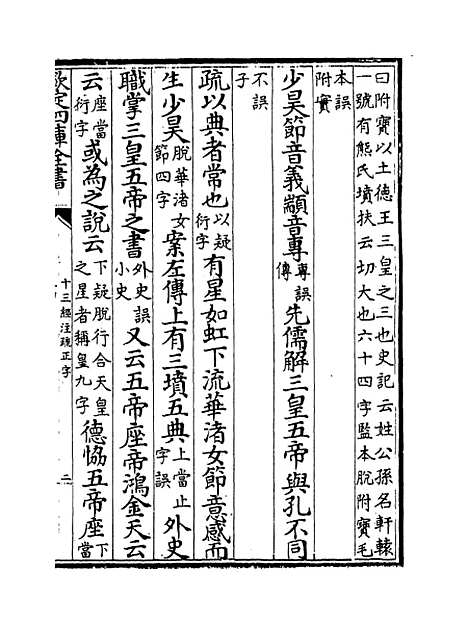 曰附寶以土德王三皇之三也史記云姓公孫名軒轅
一號有熊氏墳扶云切大也六十四字監本脫附寶毛
本誤
附實
少昊節音義顓音專專誤傳先儒解三皇五帝與孔不同
不誤
子
疏以典者常也以疑衍字有星如虹下流華渚女節意感而
生少昊脫華渚女節四字案左傳上有三墳五典上當止字誤外史
職掌三皇五帝之書外史誤小史又云五帝座帝鴻金天云
云座當衍字或為之說云下疑脫行合天皇之星者稱皇九字德協五帝座下當
欽定四庫全書
十三經注疏正字
二